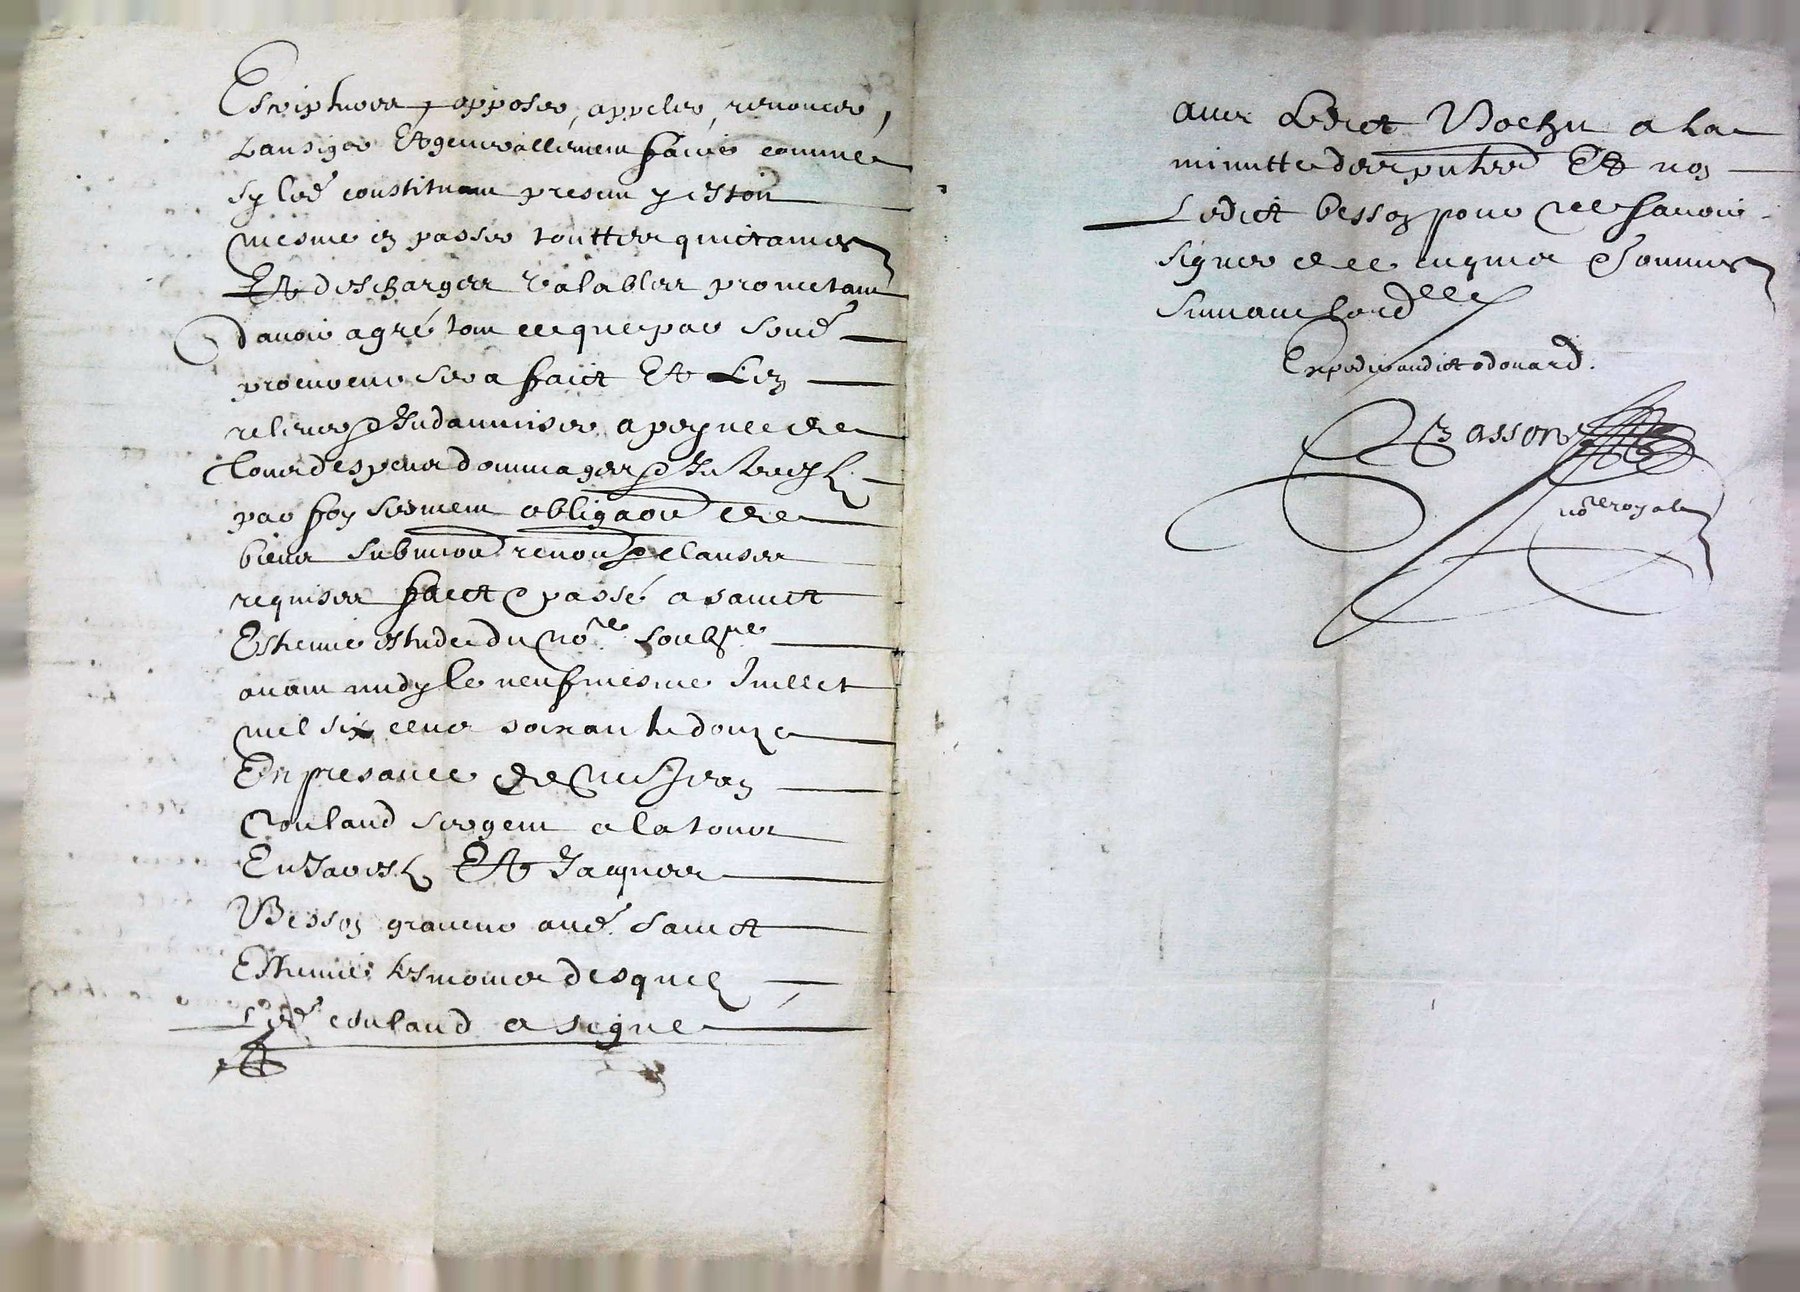 Escriptures, opposer, appeller, renoncer,
Et generallement faire comme
sy led constituant present y estoit
mesme en passer touttes quictances
Et descharges valables promettant
d'avoir agré tout ce que par sond
procureur sera faict Et L'en
relever & Indamniser a peyne de
tous despens dommages & Interestz
par foy serment obligaon de
biens submions renons & clauses
requises faict & passé a sainct
Estienne estude du nore soubsne
avant midy le neufviesme Juillet
mil six cens soixante douze
En presance de Me Jean
Coulaud sergent
Et Jacques
Besson graveur aud Sainct
Estienne tesmoins desquelz
led coulaud a signé
avec Ledict a la
minutte des presentes Et non
Ledict besson pour ne scavoir
signer de ce enquis & sommés
suivant lord
Expedié audict odouard.
Basson
nore royal